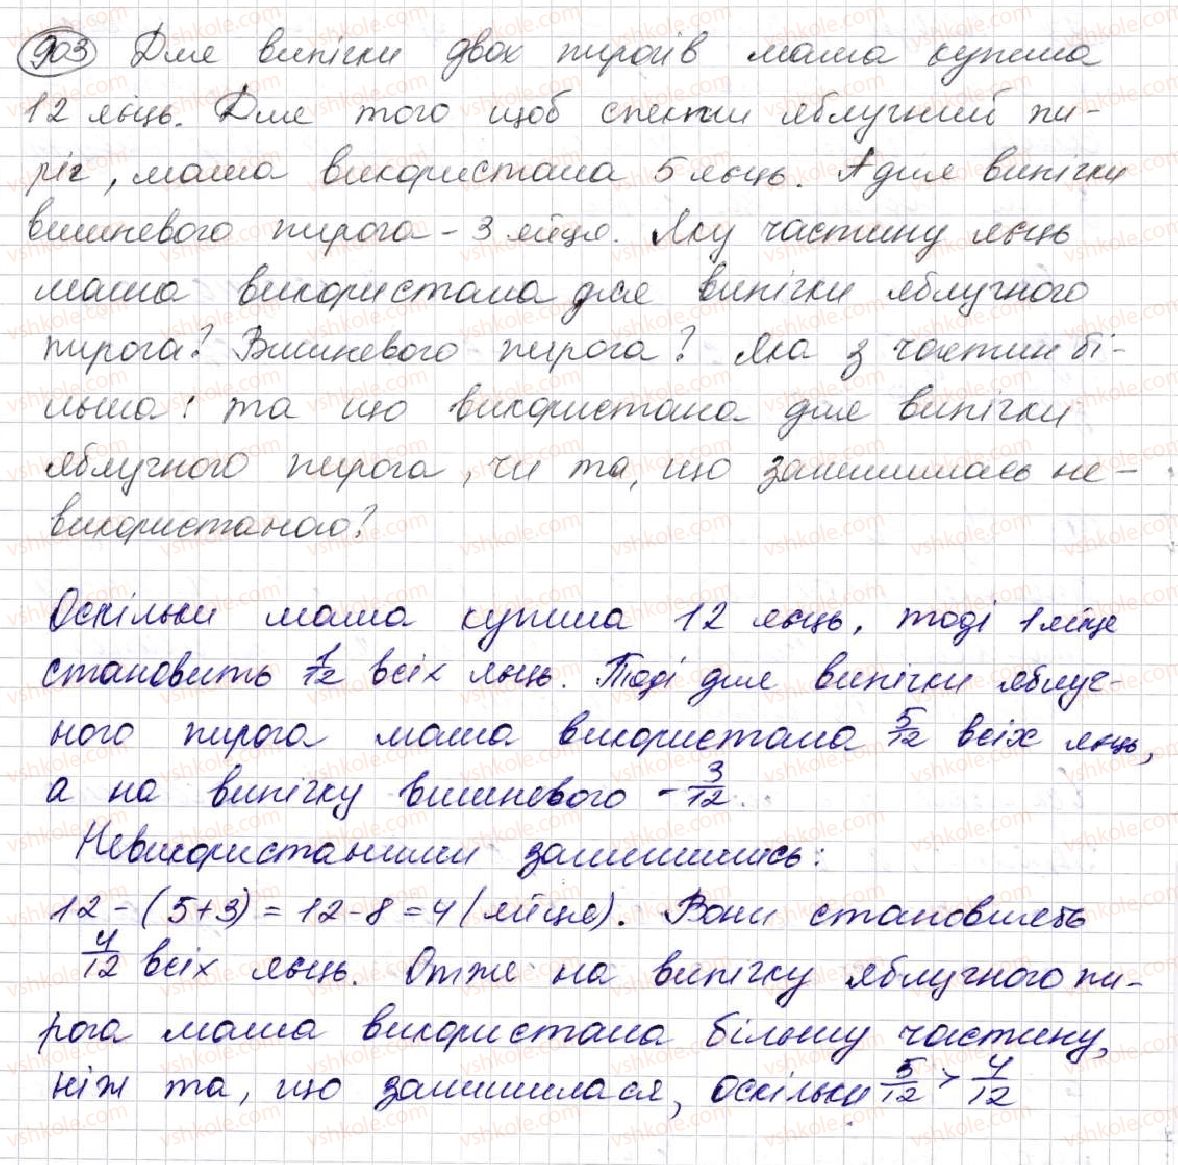 903 Для випічки двох пирогів мама купила
12 яєць. Для того щоб спекти яблучний пи-
ріг, мама використала 5 яєць. А для випічки
вишневого пирога - 3 яйця. Яку частину яєць
мама використала для випічки яблучного
пирога? Вишневого пирога? Яка з частин бі-
льша: та що використана для випічки
яблучного пирога, чи та, що залишилась не-
використаною?
Оскільки мама купила 12 яєць, тоді 1 яйце
становить 1/12 всіх яєць. Тоді для випічки яблуч-
ного пирога мама використала 5/12 всіх яєць,
а на випічку вишневого - 3/12.
Невикористаними залишились:
12 - (5+3) = 12-8 = 4 (яйця). Вони становлять
4/12 всіх яєць. Отже на випічку яблучного пи-
рога мама використала більшу частину,
ніж та, що залишилася, оскільки 5/12 > 4/12.